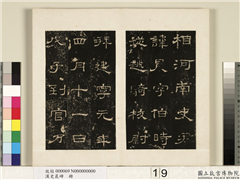 相河南史君
諱晨字伯時
從越騎校尉
拜建寧元年
四月十一日
戊子到官
故帖 000069 N000000000
漢史晨碑 冊
19
國立故宮博物院